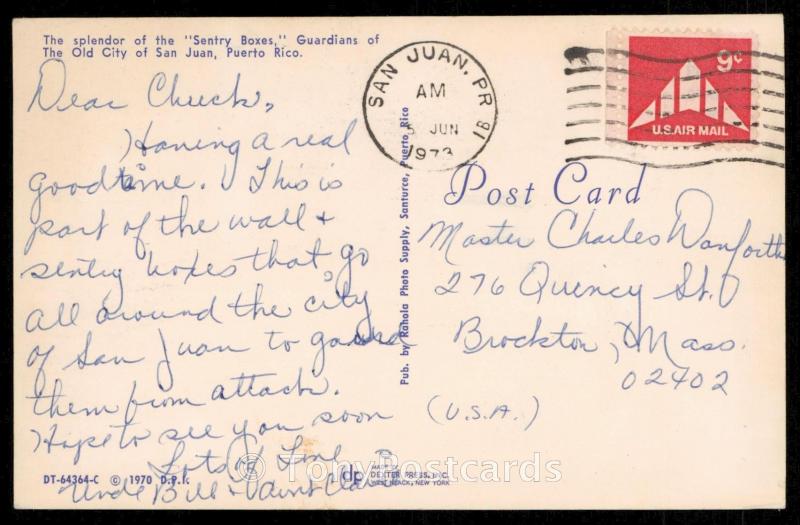 The splendor of the "Sentry Boxes," Guardians of
The Old City of San Juan, Puerto Rico.
Dear Chuck,
Having a real
good time. This is
part of the wall +
sentry boxes that go
all around the city
of San Juan to guard
them from attack.
Hope to see you soon
Lots of Love
Uncle Bill + Aunt
DT-64364-C © 1970 D.P.I.
Pub. by Rahola Photo Supply, Santurce, Puerto Rico
dp
MADE BY
DEXTER PRESS, INC.
WEST NYACK, NEW YORK
© TonyPostcards
SAN JUAN, PR
AM
5 JUN
1973
1B
9c
U.S. AIR MAIL
Post Card
Master Charles Danforth
276 Quincy St.
Brockton, Mass.
02402
(U.S.A.)